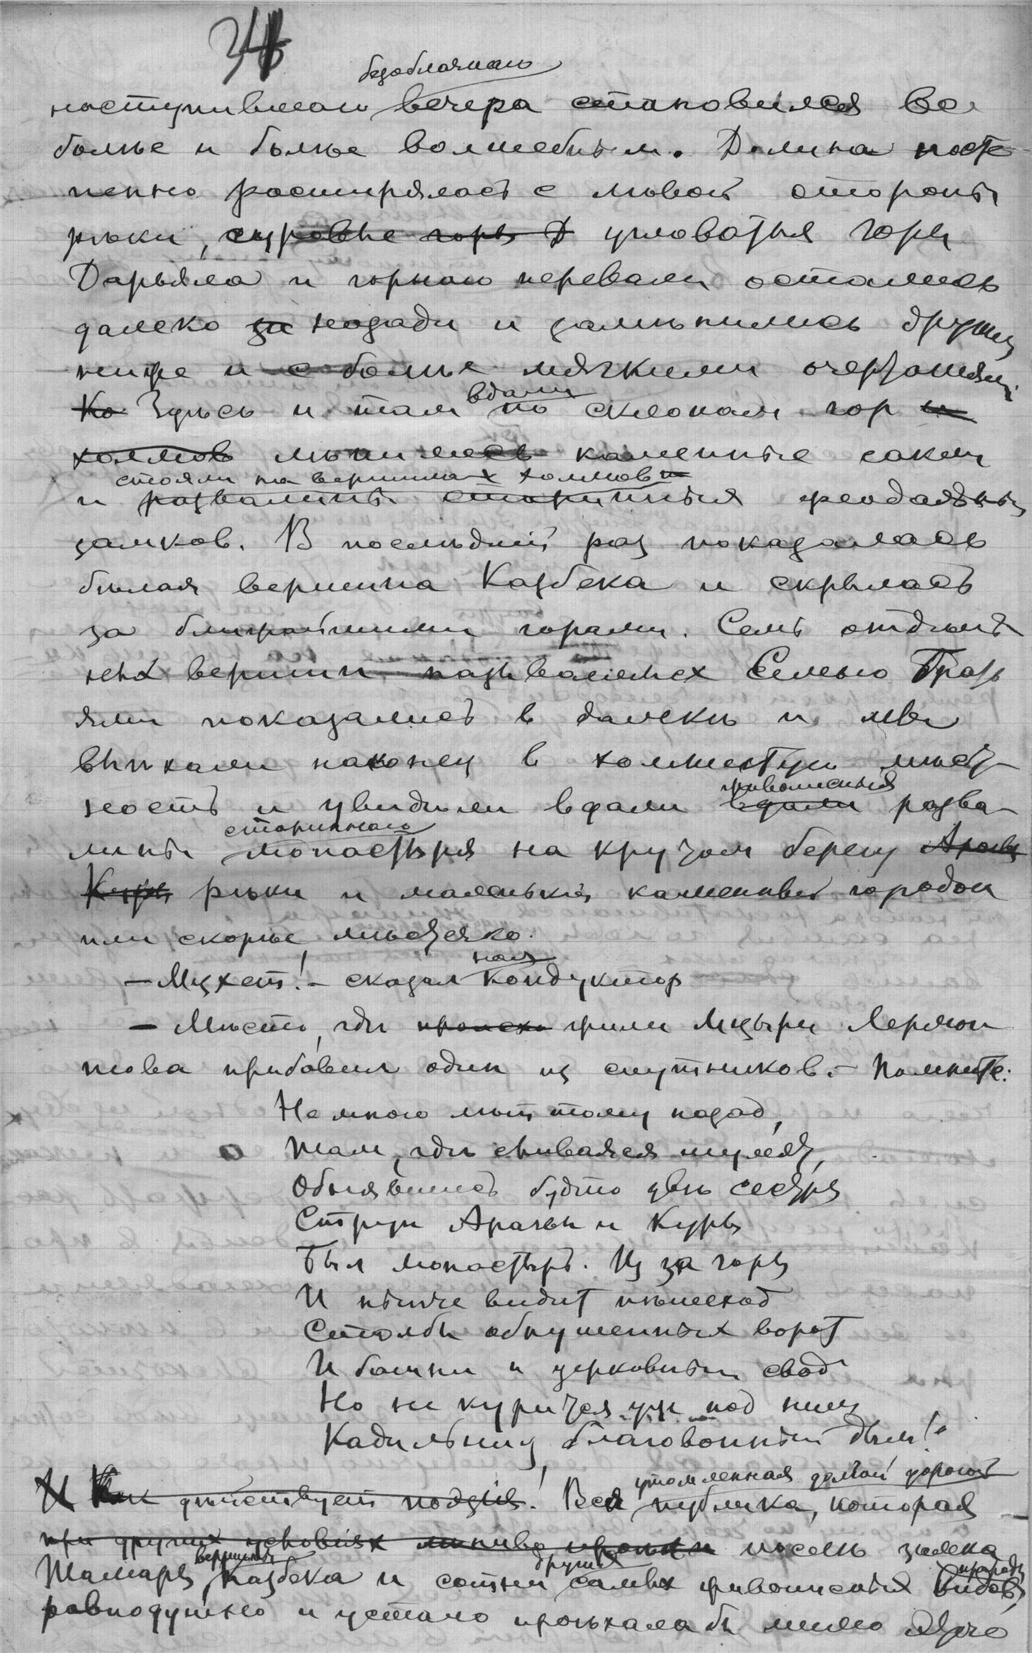 34
безоблачнаго
наступившаго вечера становился все
болѣе и болѣе волшебным. Долина посте-
пенно расширялась с лѣвой стороны
рѣки, суровые горы Д угловатыя горы
Дарьяла и горнаго перевала остались
далеко за позади и замѣнились другими
ниже и с болѣе мягкими очертаниями.
Ко Здѣсь и там вдали по склонам гор и
холмов лѣпились каменные сакли
стояли на вершинах холмов
и развалины старинных феодальных
замков. В послѣдний раз показалась
бѣлая вершина Казбека и скрылась
за ближайшими горами. Семь отдѣль-
ных вершин называемых Семью Брать-
ями показались в далеке и мы
въѣхали наконец в холмистую мѣст-
ность и увидѣли вдали вдали живописныя разва-
стариннаго
лины монастыря на крутом берегу Арагвы
Куры рѣки и маленький каменный городок
или скорѣе мѣстечко.
— Мцхет! – сказал наш кондуктор
— Мѣсто, гдѣ происхо жили Мцыри Лермон-
това прибавил один из спутников. – Помните:
Немного лѣт тому назад,
Там, гдѣ сливаяся шумят,
Обнявшись будто двѣ сестры
Струи Арагвы и Куры
Был монастырь. Из за горы
И нынче видит пѣшеход
Столбы обрушенных ворот
И башни и церковный свод
Но не курится уж под ним
Кадильниц благовонный дым!"
И Как дѣйствует поэзия! Вся утомленная долгой дорогой публика, которая
при других условиях лѣниво проѣхали послѣ замка
Тамары, вершины Казбека и сотни других самых живописных видов природы
равнодушно и устало проѣхала бы мимо этого